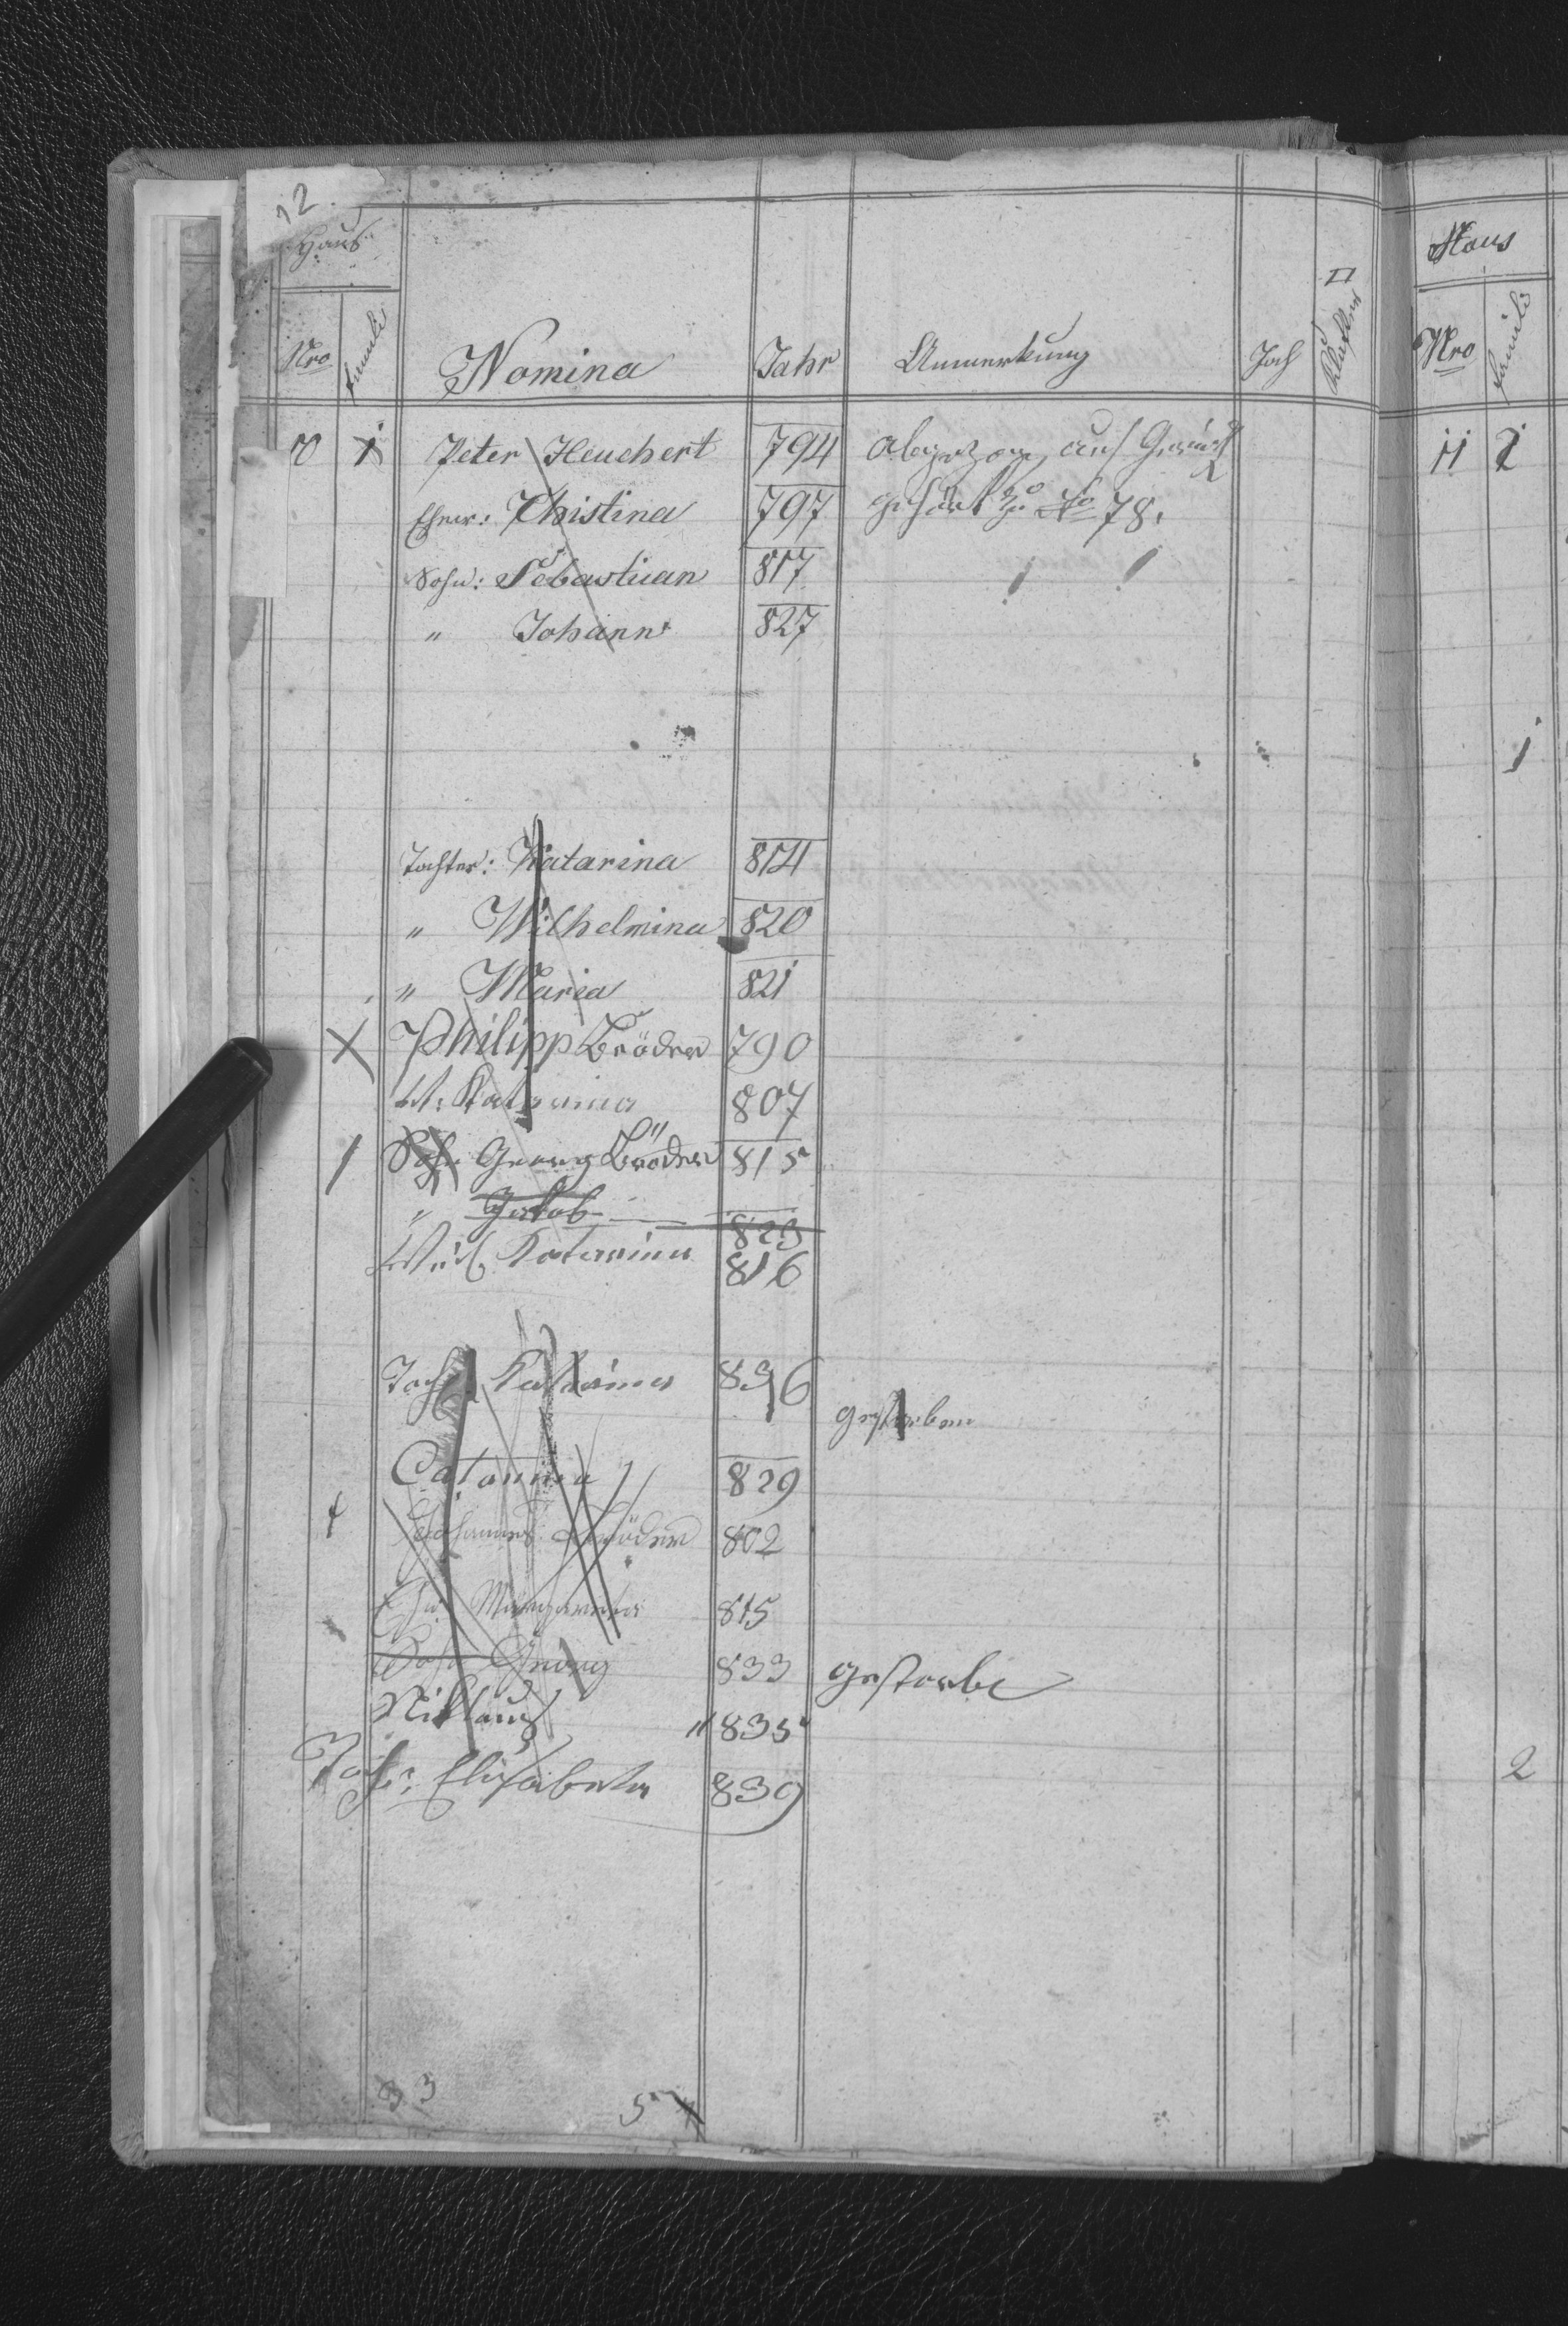 12.
Haus
Nro Famili Nomina Jahr Anmerkung Joch □ Klafter
10 1 Peter Heuchert 794 abgezogen auf
Ehew: Christina 797 gehört zu No 78.
Sohn: Sebastian 817
" Johann 827
Tochter: Katarina 814
" Wilhelmina 820
" Maria 821
Philipp Bröder 790
W: Katarina 807
1 Sohn Georg Bröder 815
" Jakob 823
Weib Katarina 816
Toch Katarina 836
gestorben
Catarina 829
Johannes Bröder 802
Margaretha 815
Sohn Georg 833 gestorbe
Niklaus " 835
Toch: Elisabeta 839
33 5
Haus
Nro Famili
11 1
1
2